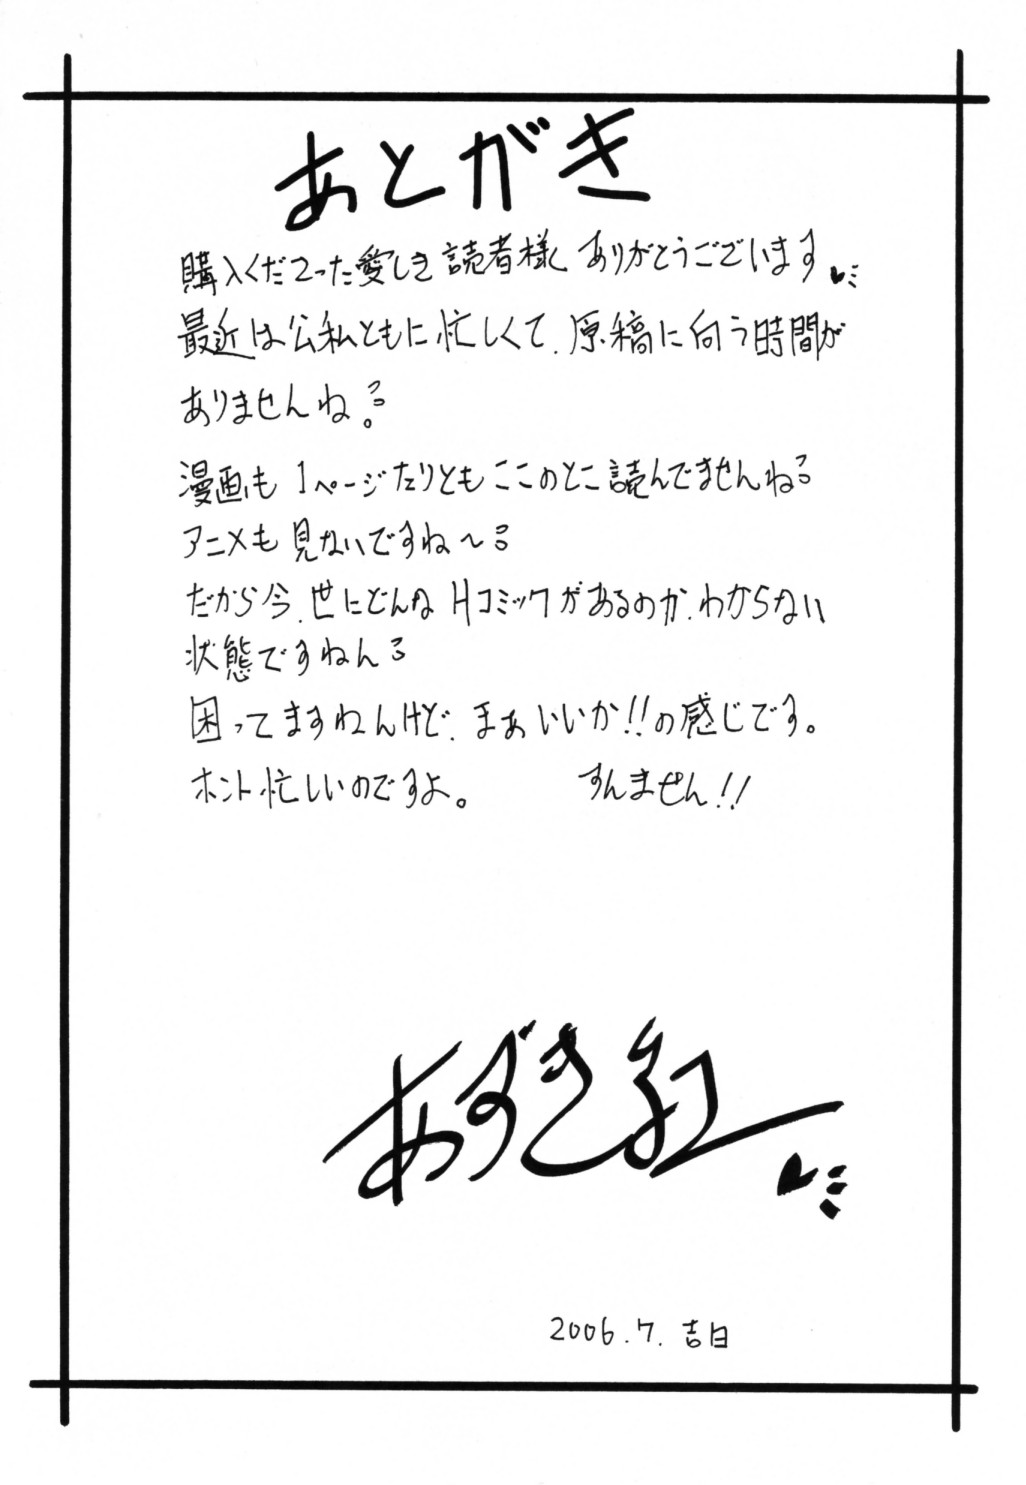 あとがき
購入くださった愛しき読者様 ありがとうございます
最近は公私ともに忙しくて、原稿に向う時間が
ありませんね。
漫画も1ページたりともここのとこ読んでませんねー
アニメも見ないですね〜
だから今、世にどんなHコミックがあるのか、わからない
状態ですねん
困ってますねんけど、まあいいか!!の感じです。
ホント忙しいのですよ。 すんません!!
あずき紅
2006.7.吉日